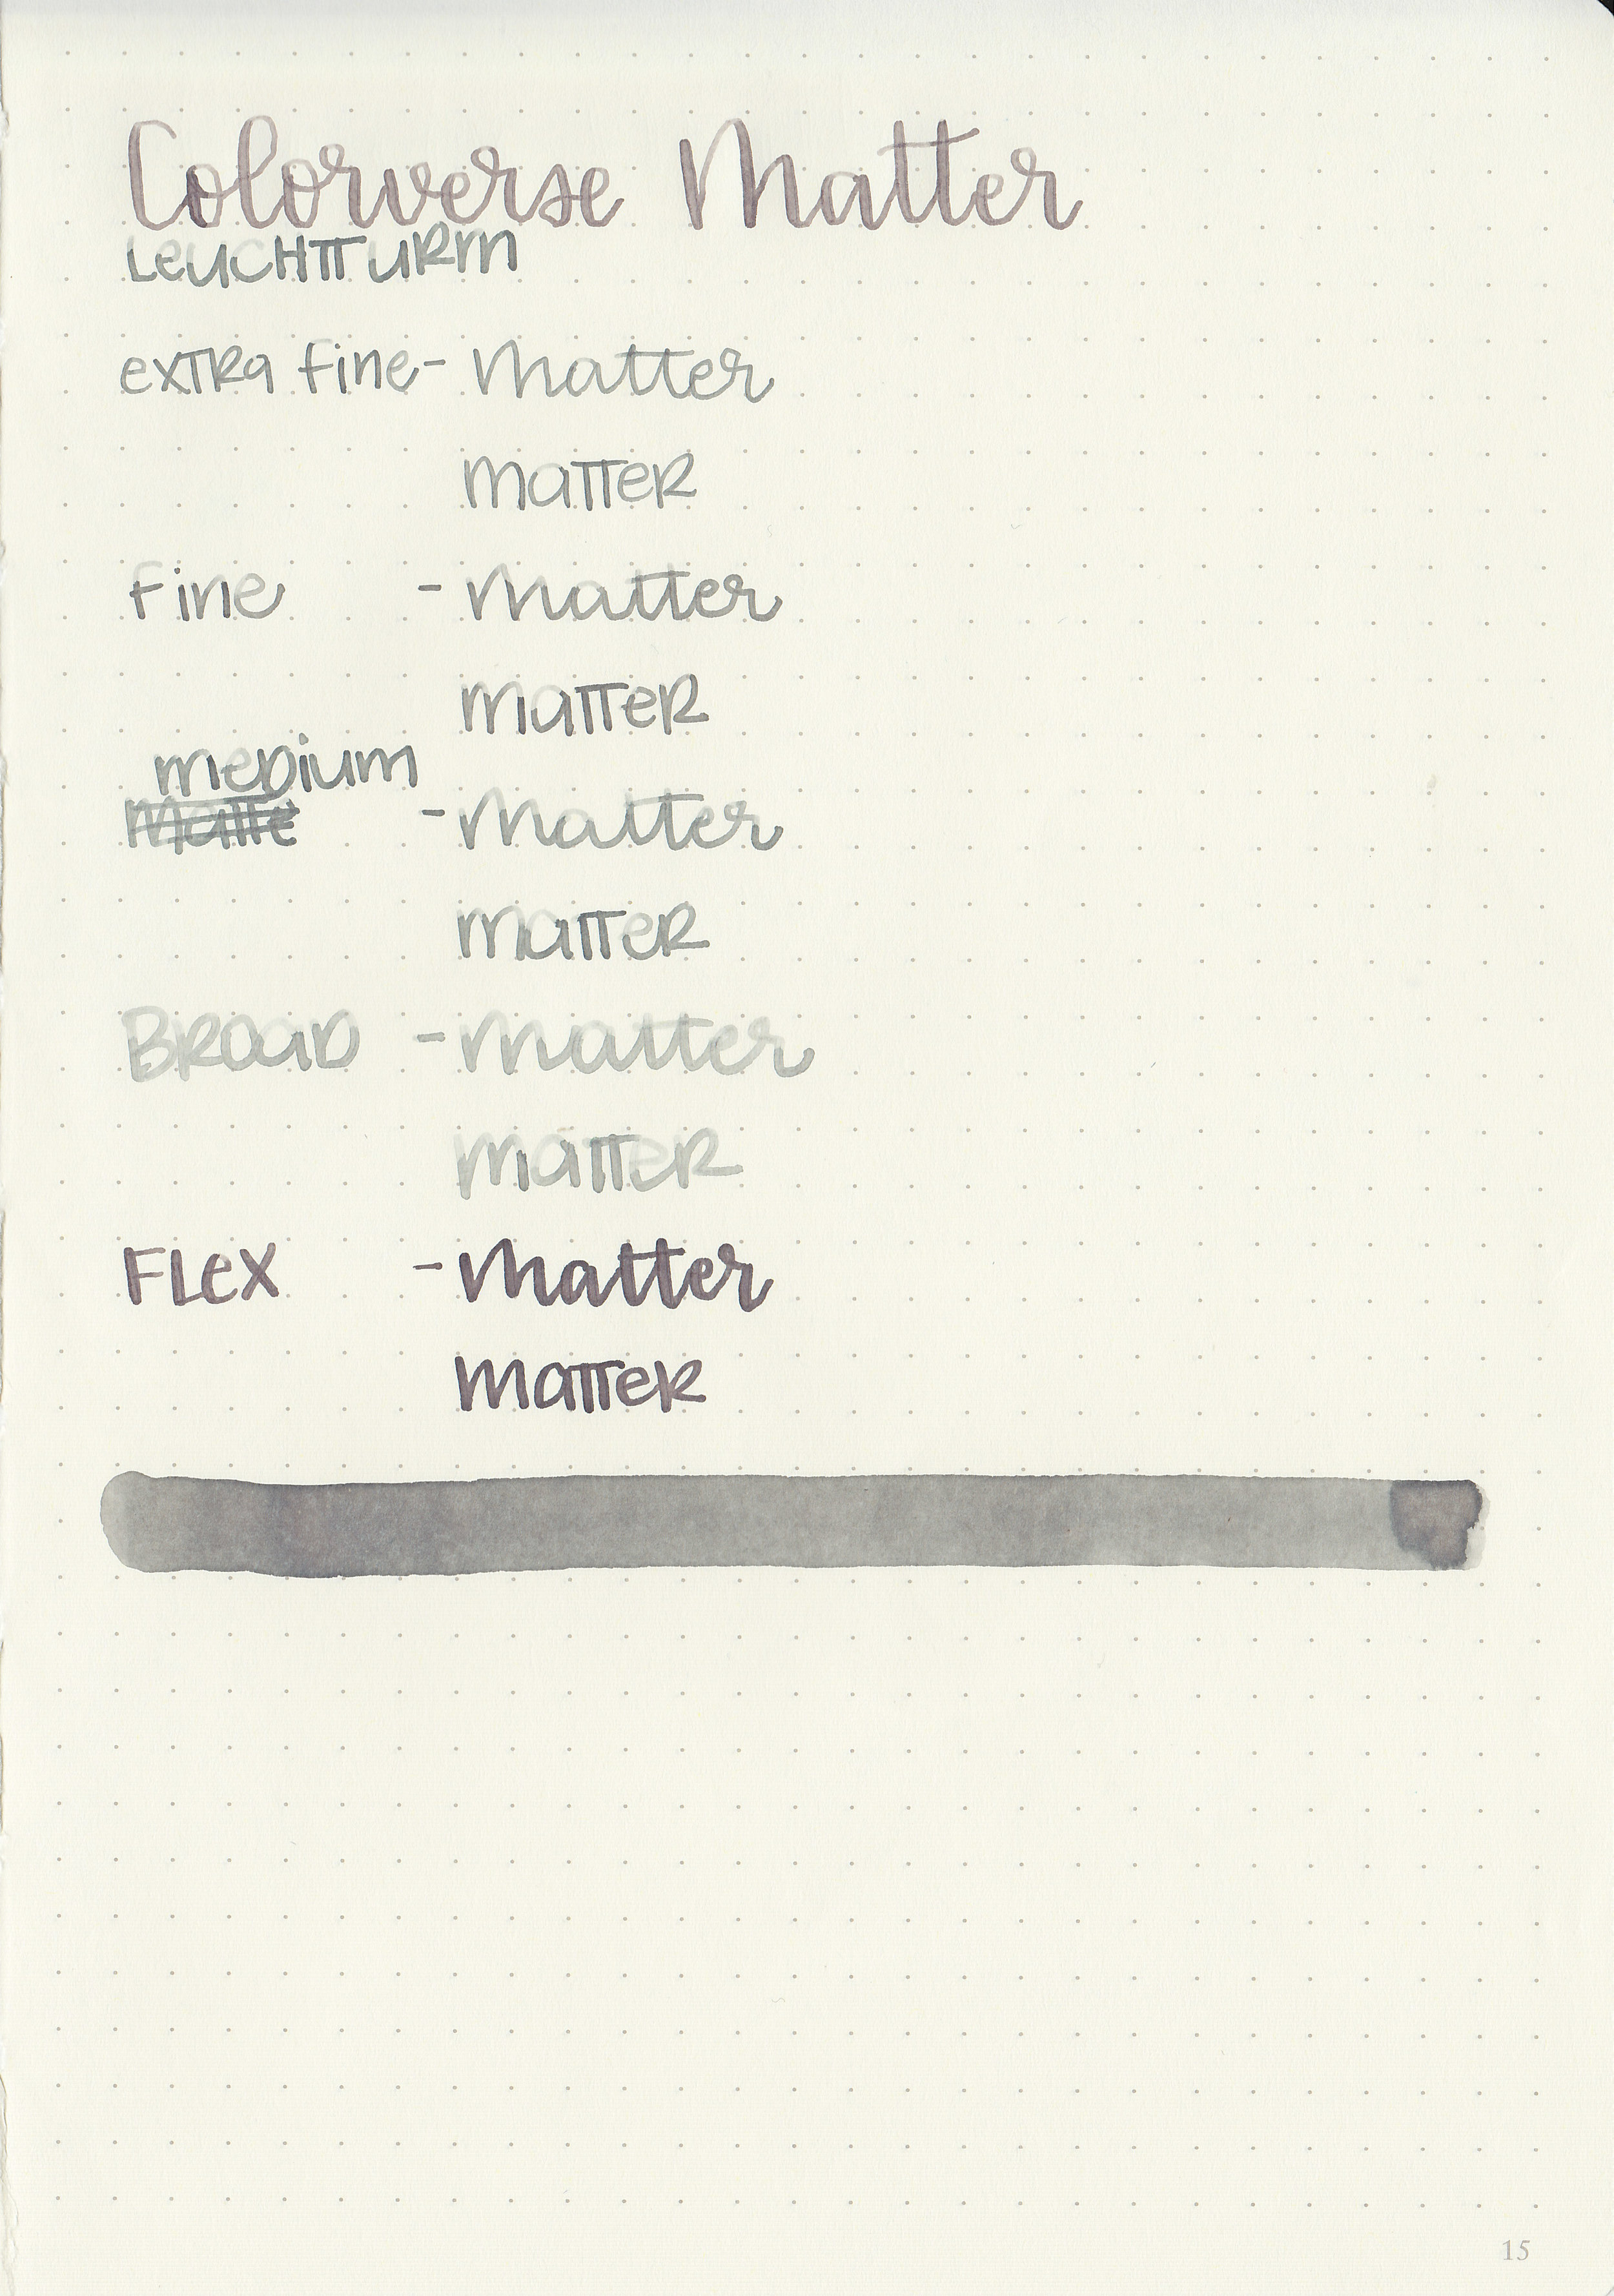 Colorverse Matter
Leuchtturm
extra fine - Matter
matter
Fine - Matter
matter
medium
Matte - Matter
matter
Broad - Matter
matter
Flex - Matter
matter
15